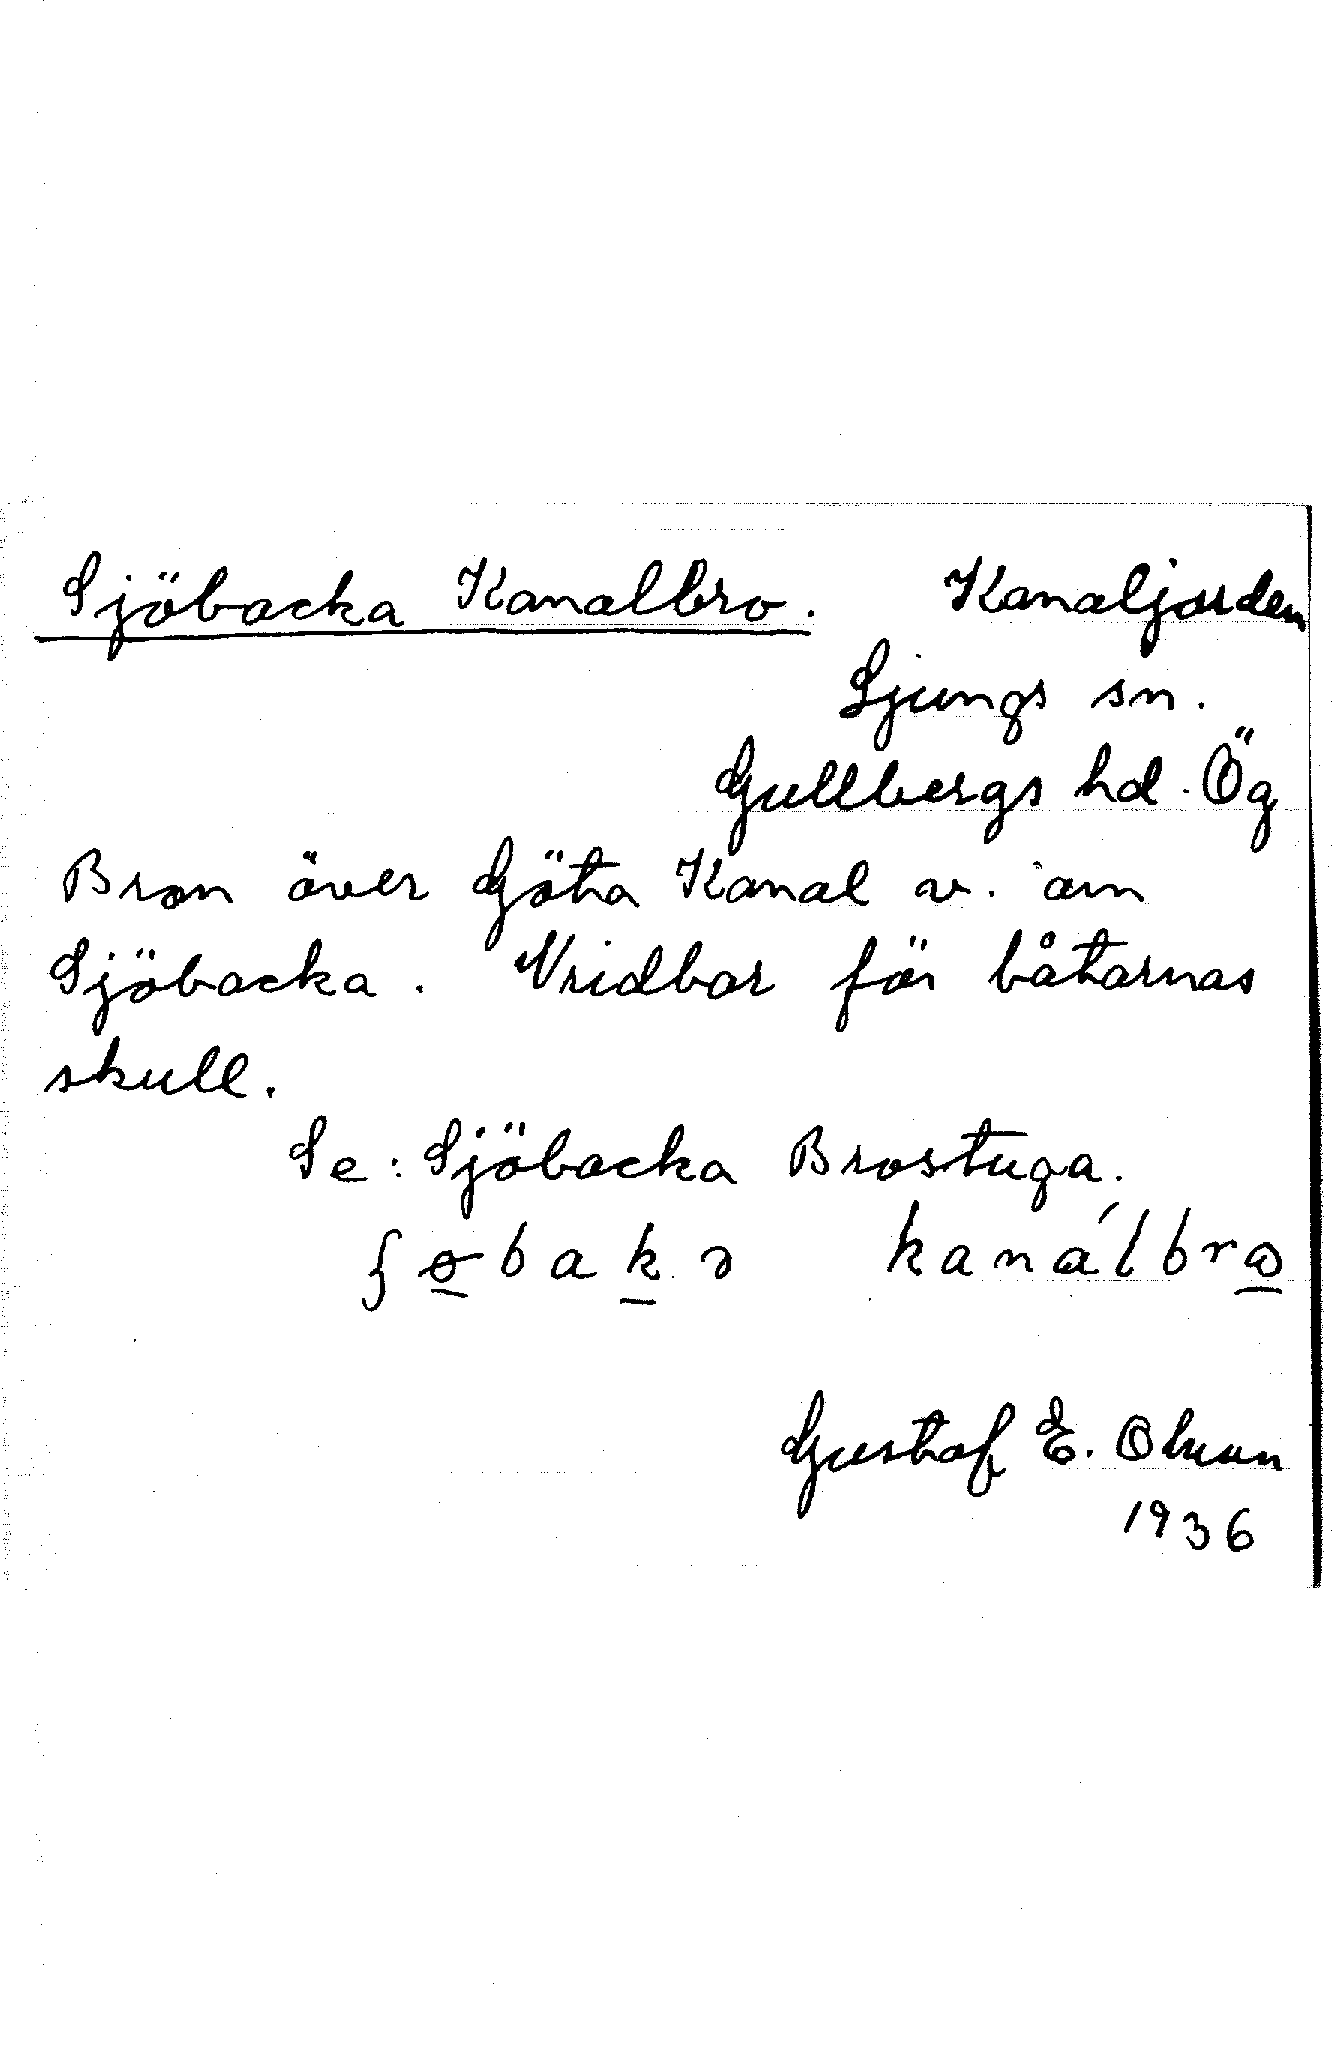 Sjöbacka Kanalbro. Kanaljorden
Ljungs sn.
Gullbergs hd. Ög
Bron över Göta Kanal v. om
Sjöbacka. Vridbar för båtarnas
skull.
Se: Sjöbacka Brostuga.
kanálbrɷ
Gustaf E. Olsson
1936